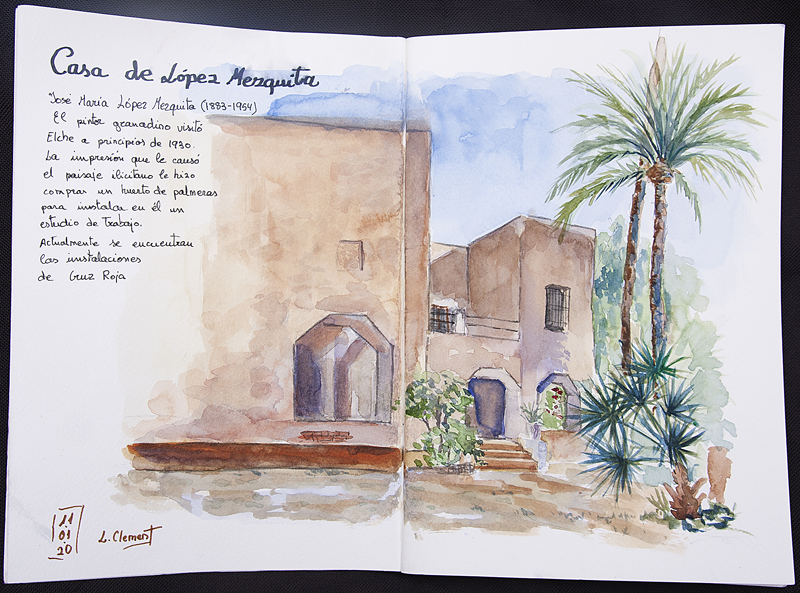 Casa de López Mezquita
José María López Mezquita (1883-1954)
El pintor granadino visitó
Elche a principios de 1930.
La impresión que le causó
el paisaje ilicitano le hizo
comprar un huerto de palmeras
para instalar en él un
estudio de Trabajo.
Actualmente se encuentran
las instalaciones
de Cruz Roja
11
01
20
L. Clement